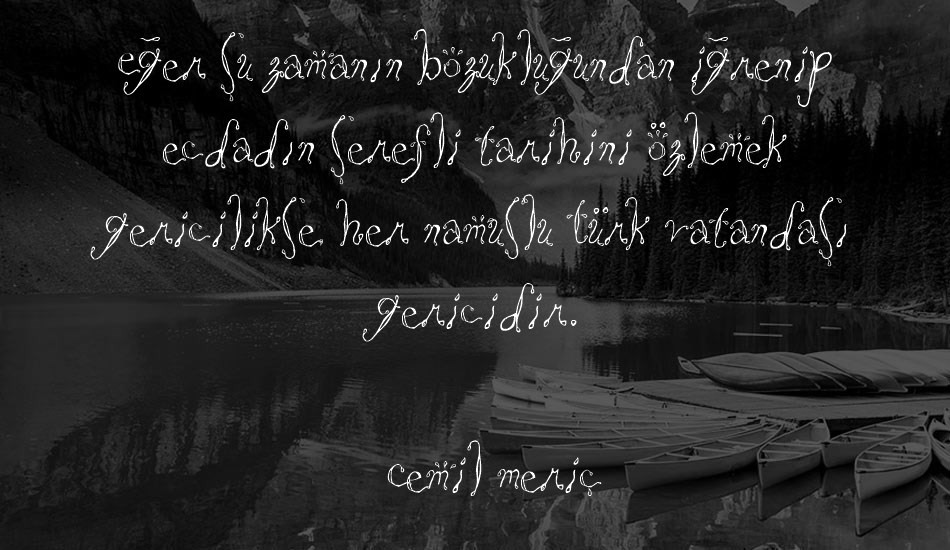 eğer şu zamanın bözukluğundan iğrenip
ecdadın şerefli tarihini özlemek
gericilikse, her namuslu türk vatandaşı
gericidir.
cemil meriç